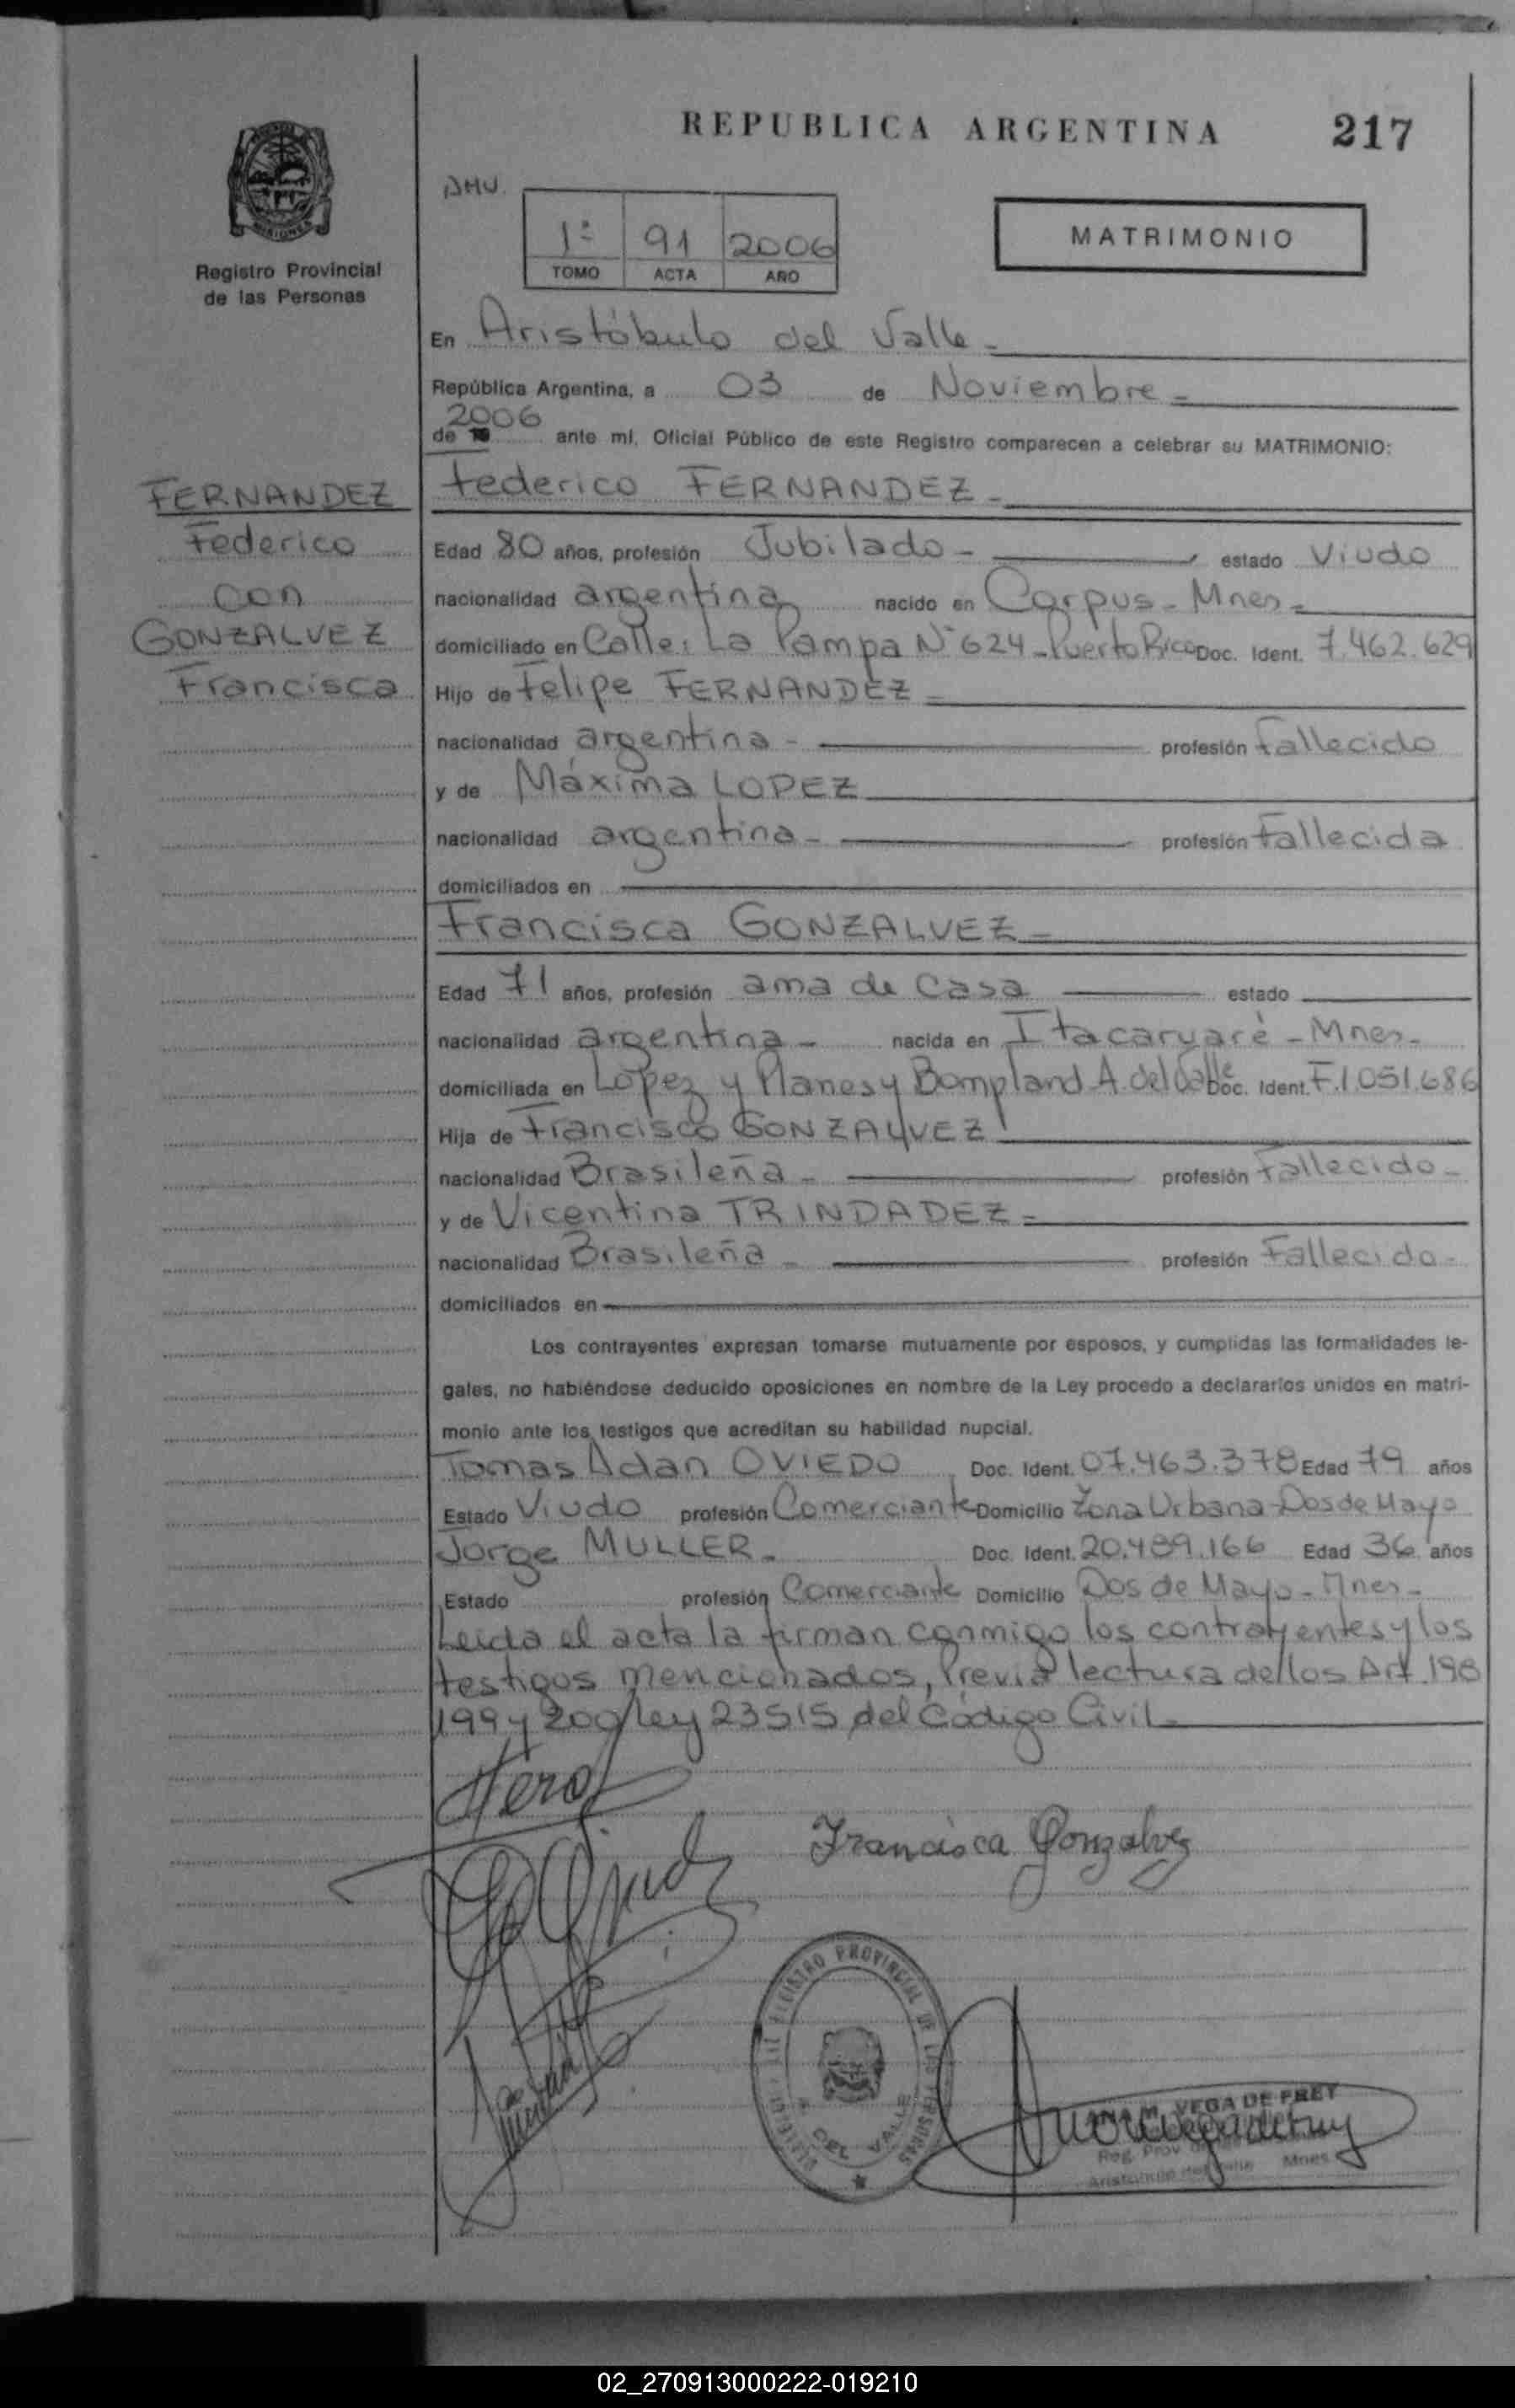 REPUBLICA ARGENTINA 217
MISIONES
Registro Provincial
de las Personas
1º 91 2006
TOMO ACTA AÑO
MATRIMONIO
En Aristóbulo del Valle -
República Argentina, a 03 de Noviembre -
2006
de 19 ante mi, Oficial Público de este Registro comparecen a celebrar su MATRIMONIO:
FERNANDEZ
Federico
con
GONZALVEZ
Francisca
Federico FERNANDEZ -
Edad 80 años, profesión Jubilado - estado Viudo
nacionalidad argentina nacido en Corpus - Mnes -
domiciliado en Calle: La Pampa Nº 624 - Puerto Rico Doc. Ident. 7.462.629
Hijo de Felipe FERNANDEZ
nacionalidad argentina - profesión fallecido
y de Máxima LOPEZ
nacionalidad argentina - profesión Fallecida
domiciliados en
Francisca GONZALVEZ -
Edad 71 años, profesión ama de Casa estado
nacionalidad argentina - nacida en Itacaruaré - Mnes -
domiciliada en López y Planes y Bompland A. del Valle Doc. Ident. F.1.051.686
Hija de Francisco GONZALVEZ
nacionalidad Brasileña - profesión Fallecido -
y de Vicentina TRINDADEZ -
nacionalidad Brasileña - profesión Fallecida -
domiciliados en
Los contrayentes expresan tomarse mutuamente por esposos, y cumplidas las formalidades le-
gales, no habiéndose deducido oposiciones en nombre de la Ley procedo a declararlos unidos en matri-
monio ante los testigos que acreditan su habilidad nupcial.
Tomas Adan OVIEDO Doc. Ident. 07.463.378 Edad 79 años
Estado Viudo profesión Comerciante Domicilio Zona Urbana - Dos de Mayo
Jorge MULLER - Doc. Ident. 20.489.166 Edad 36 años
Estado profesión Comerciante Domicilio Dos de Mayo - Mnes -
Leida el acta la firman conmigo los contrayentes y los
testigos mencionados, Previa lectura de los Art. 198
199 y 200 Ley 23515 del Código Civil
Francisca Gonzalvez
REGISTRO PROVINCIAL DE LAS PERSONAS
A. DEL VALLE
M. VEGA DE FREY
Reg. Prov.
Aristóbulo del Valle Mnes
02_270913000222-019210